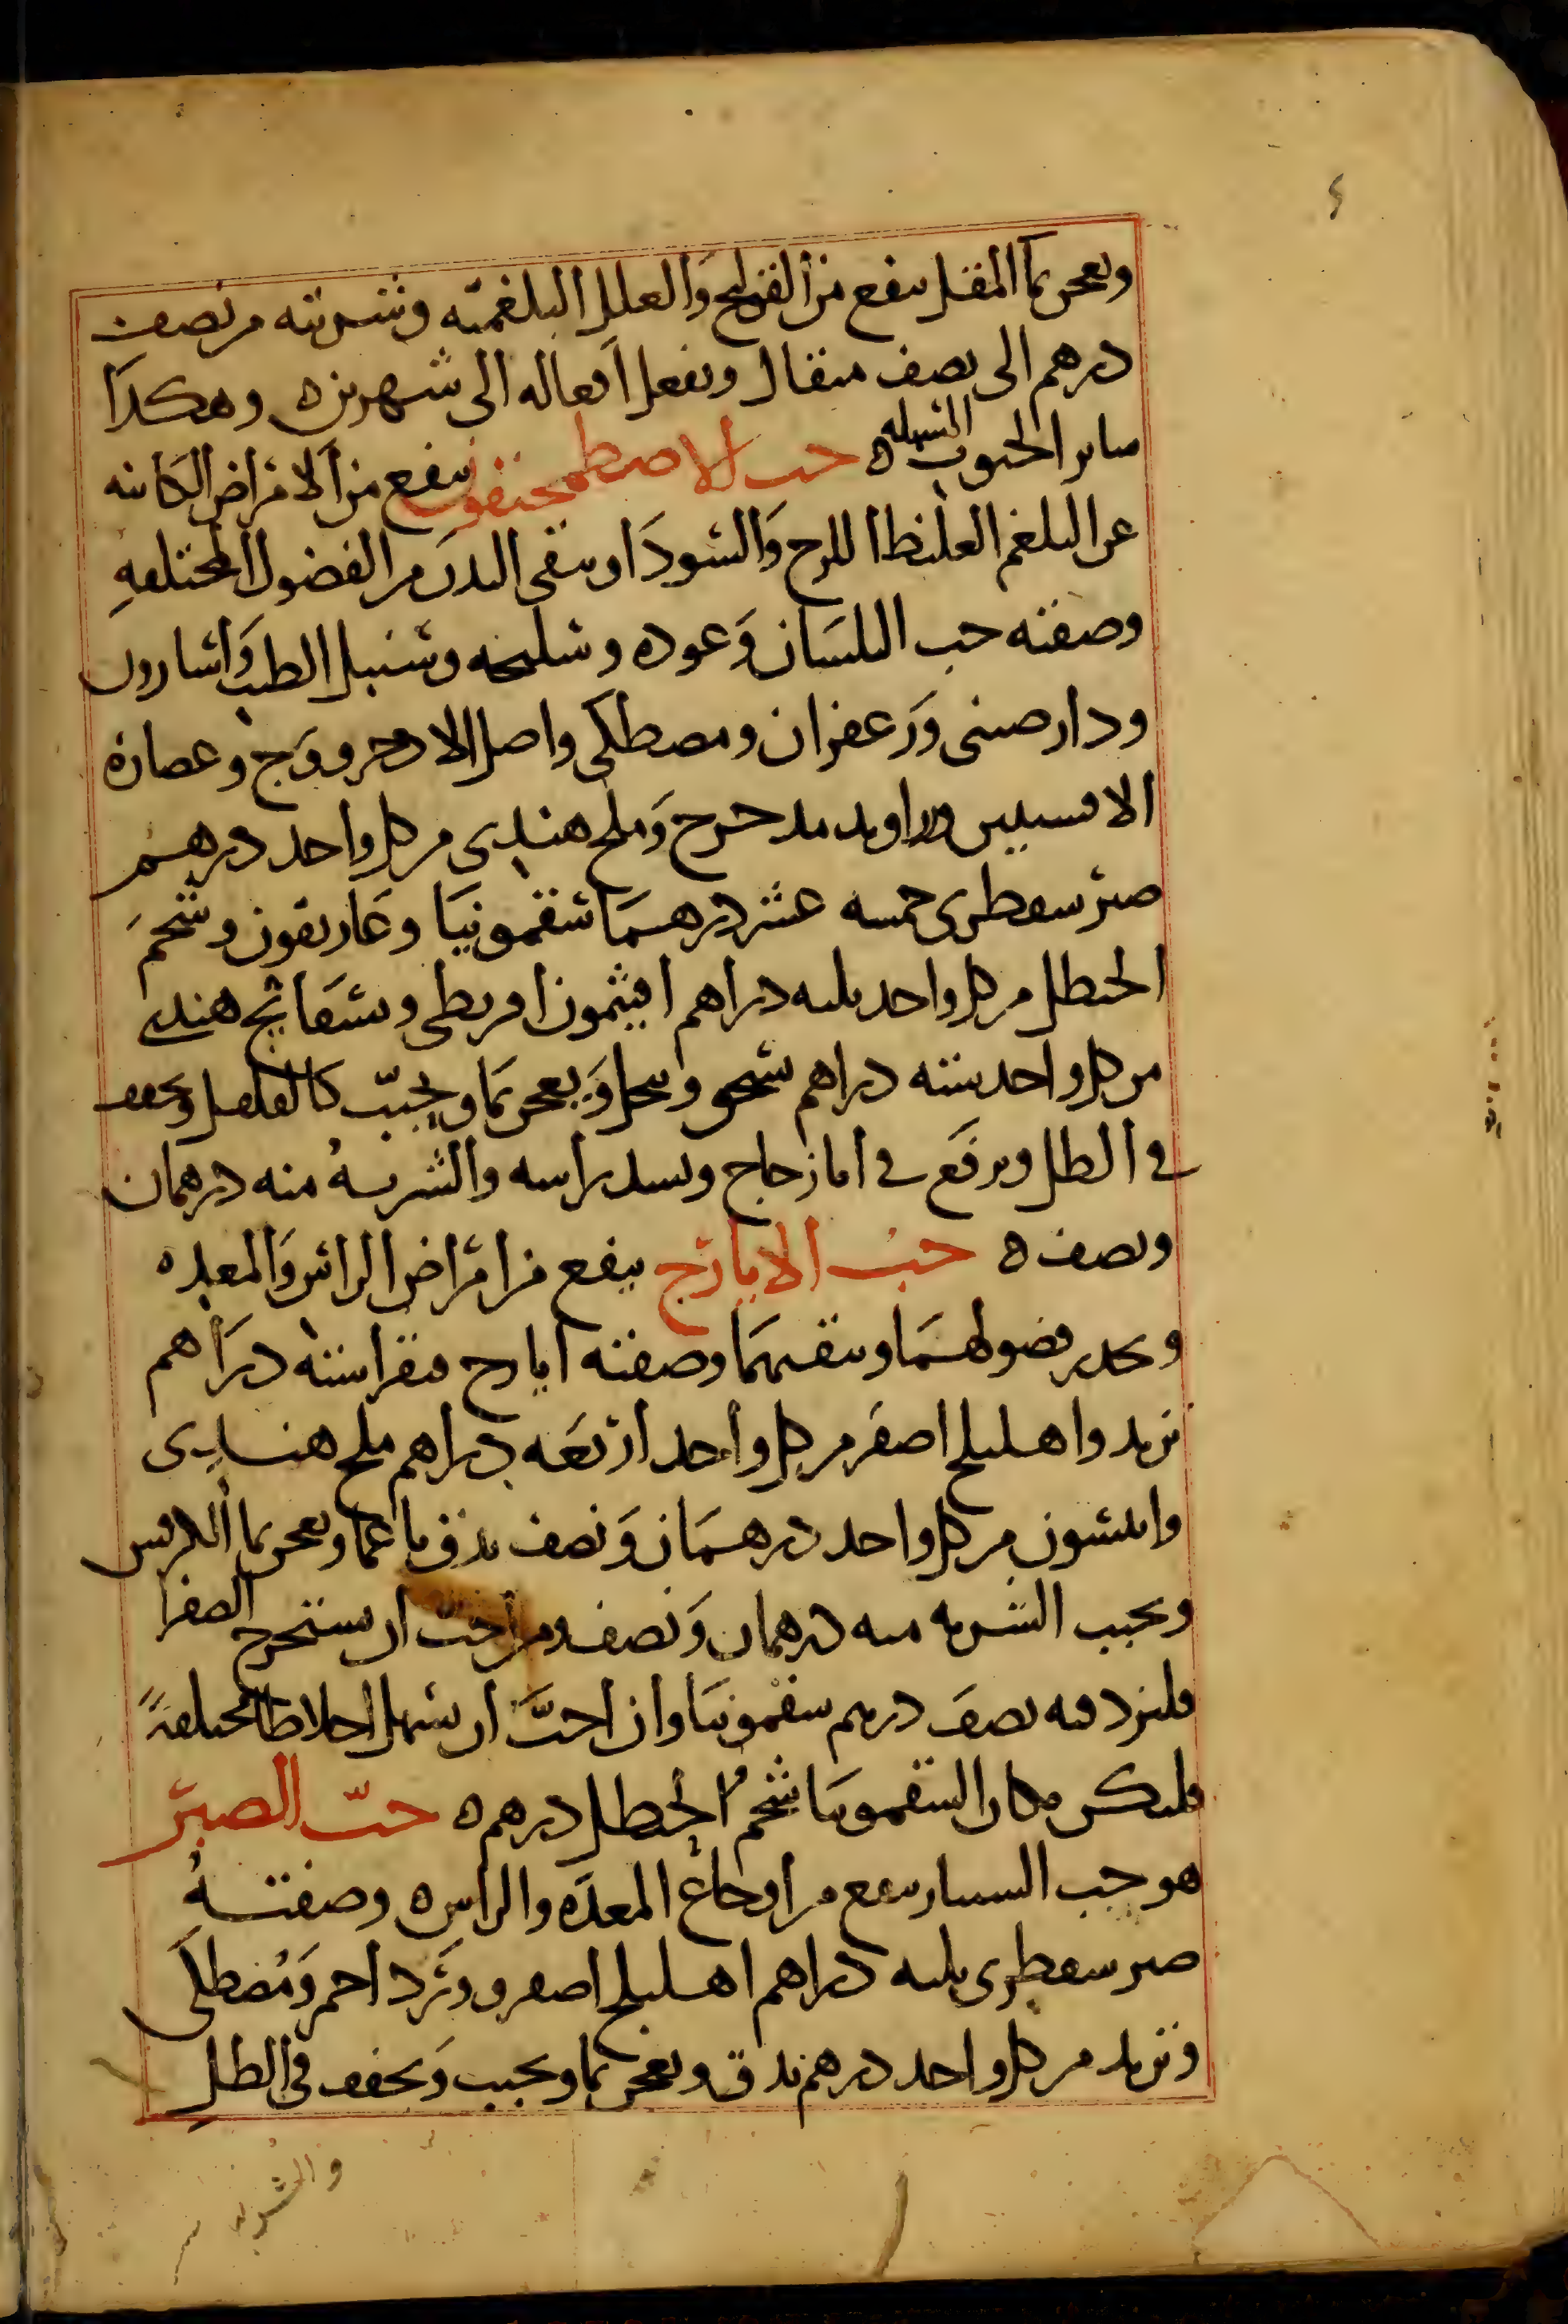 ٤
وىعجن بما المقل ينفع من القولنج والعلل البلغميّه وشربته من نصف
درهم الى نصف مثقال ويفعل افعاله الى شهرين ه وهكذا
ساير الحبوب المسهله ه حب الاصطمخيقون ينفع من الامراض الكاينه
عن البلغم الغليظ اللزج والسودا وينقى البدن من الفضول المختلفهِ
وصفته حب البلسان وعوده وسليخه وسنبل الطيب واسارون
ودارصينى وزعفران ومصطكى واصل الاذخر ووج وعصاره
الافسنتين وزراوند مدحرج وملح هندى من كل واحد درهم
صبر سقطرى خمسه عشر درهما سقمونيا وغاريقون وشحم
الحنظل من كل واحد ثلثه دراهم افيثمون اقريطى وبسفايج هندى
من كل واحد سته دراهم يسحق وينخل ويعجن بما ويحبّب كالفلفل ويجفف
فى الظل ويرفع فى انا زجاج ويسد راسه والشربهُ منه درهمان
ونصف ه حب الايارج ينفع من امراض الراس والمعده
ويحدر فضولهما وينقيهما وصفته ايارج فيقرا سته دراهم
تربد واهليلج اصفر من كل واحد اربعه دراهم ملح هندى
وانيسون من كل واحد درهمان ونصف يدق ناعما ويعجن بما الكرفس
ويحبب الشربه منه درهمان ونصف ومن احب ان يستخرج الصفرا
فليزد فيه نصف درهم سقمونيا وان احبَّ ان يسهل اخلاطا مختلفةً
فليكن مكان السقمونيا شحم الحنظل درهم ه حبّ الصبر
هو حب السبيار ينفع من اوجاع المعده والراس ه وصفتهُ
صبر سقطرى ثلثه دراهم اهليلج اصفر وورد احمر ومصطكى
وتربد من كل واحد درهم يدق ويعجن بما ويحبب ويجفف فى الظلِ
والشربه